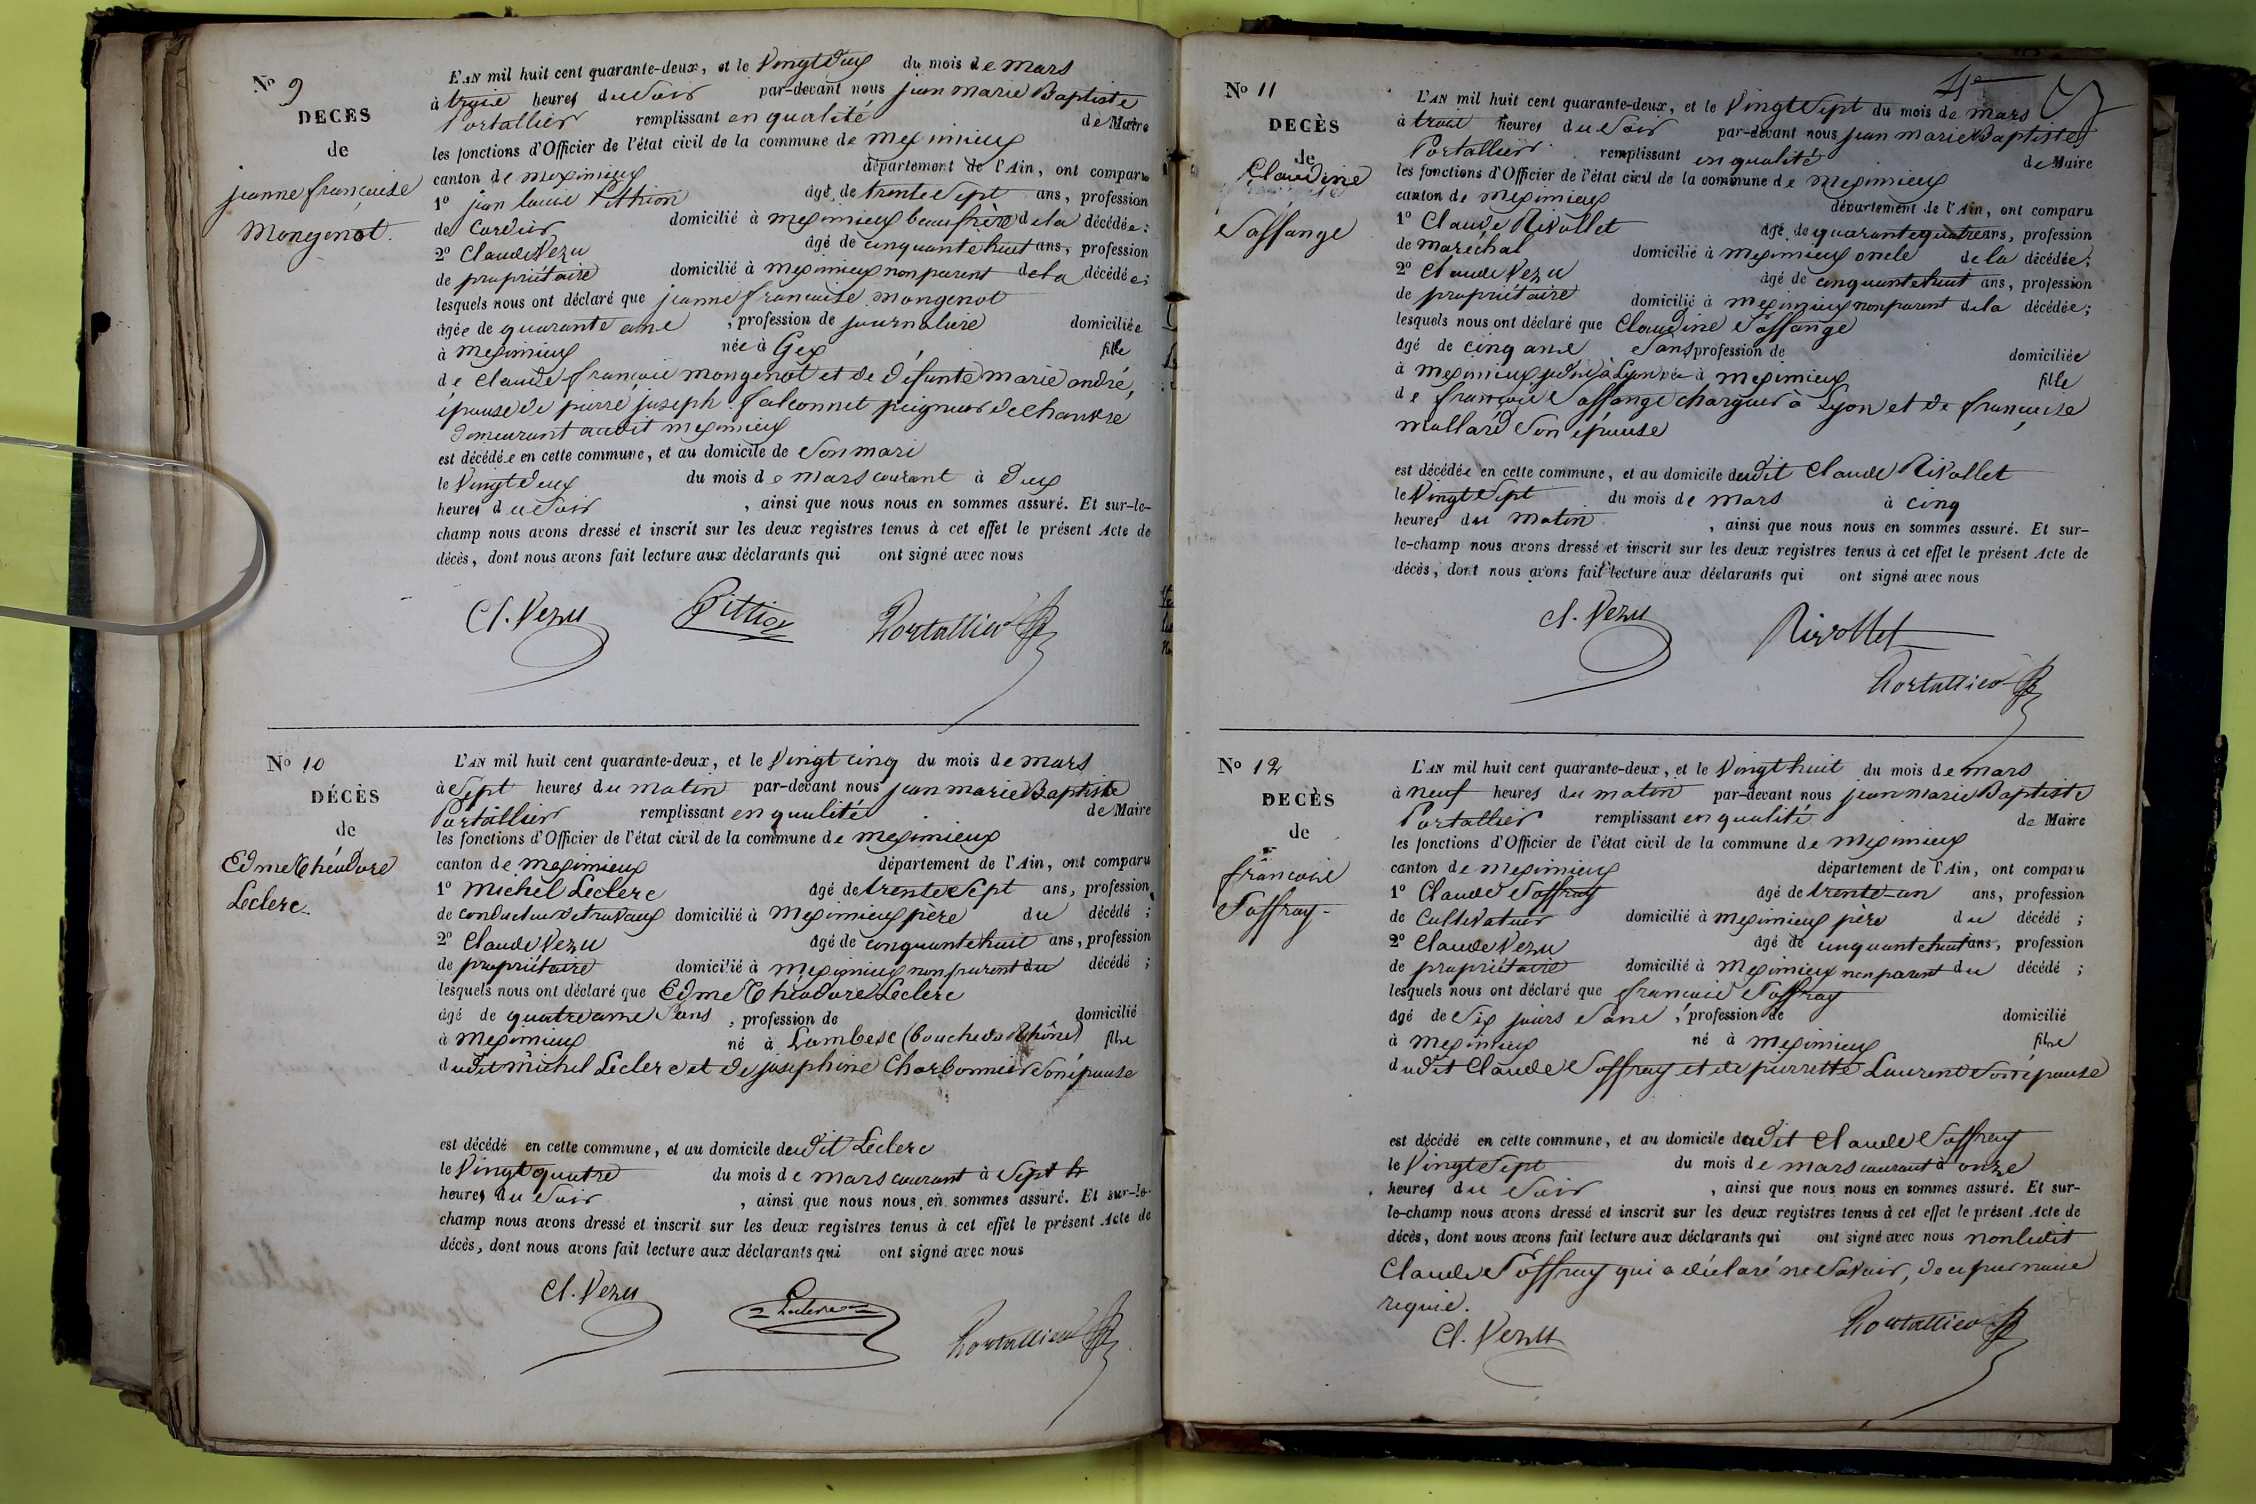 Nº 9
DECÈS
de
jeanne françoise
Mongenot.
L'AN mil huit cent quarante-deux, et le Vingt deux du mois de mars
à trois heures du Soir par-devant nous jean marie Baptiste
Portallier remplissant en qualité de Maire
les fonctions d'Officier de l'état civil de la commune de meximieux
canton de meximieux département de l'Ain, ont comparu
1º jean louis Pithion âgé de trente Sept ans, profession
de Cordier domicilié à meximieux beaufrère de la décédée;
2º Claude Vezu âgé de cinquante huit ans, profession
de propriétaire domicilié à meximieux non parent de la décédée;
lesquels nous ont déclaré que jeanne francoise mongenot
âgée de quarante ans , profession de journalière domiciliée
à meximieux née à Gex fille
de Claude françois mongenot et de défunte marie andré,
épouse de pierre joseph falconnet peigneur de Chanvre
demeurant audit meximieux
est décédée en cette commune, et au domicile de Son mari
le Vingt deux du mois de mars courant à deux
heures du Soir , ainsi que nous nous en sommes assuré. Et sur-le-
champ nous avons dressé et inscrit sur les deux registres tenus à cet effet le présent Acte de
décès, dont nous avons fait lecture aux déclarants qui ont signé avec nous
Cl. Vezu Pittion Portallier
Nº 10
DÉCÈS
de
Edme Théodore
Leclerc.
L'AN mil huit cent quarante-deux, et le Vingt cinq du mois de mars
à Sept heures du matin par-devant nous jean marie Baptiste
Portallier remplissant en qualité de Maire
les fonctions d'Officier de l'état civil de la commune de meximieux
canton de meximieux département de l'Ain, ont comparu
1º Michel Leclerc âgé de trente Sept ans, profession
de conducteur de travaux domicilié à Meximieux père du décédé;
2º Claude Vezu âgé de cinquante huit ans, profession
de propriétaire domicilié à Meximieux non parent du décédé;
lesquels nous ont déclaré que Edme Théodore Leclerc
âgé de quatre ans Sans , profession de domicilié
à Meximieux né à Lambesc (bouche du Rhône) fils
dudit michel Leclerc et de joséphine Charbonnier Son épouse
est décédé en cette commune, et au domicile dudit Leclerc
le Vingt quatre du mois de mars courant à Sept h
heures du Soir , ainsi que nous nous en sommes assuré. Et sur-le-
champ nous avons dressé et inscrit sur les deux registres tenus à cet effet le présent Acte de
décès, dont nous avons fait lecture aux déclarants qui ont signé avec nous
Cl. Vezu Leclerc Portallier
4e
Nº 11
DECÈS
de
Claudine
Saffange
L'AN mil huit cent quarante-deux, et le Vingt Sept du mois de mars
à trois heures du Soir par-devant nous jean marie Baptiste
Portallier remplissant en qualité de Maire
les fonctions d'Officier de l'état civil de la commune de Meximieux
canton de meximieux département de l'Ain, ont comparu
1º Claude Rivollet âgé de quarante quatre ans, profession
de maréchal domicilié à meximieux oncle de la décédée;
2º Claude Vezu âgé de cinquante huit ans, profession
de propriétaire domicilié à meximieux non parent de la décédée;
lesquels nous ont déclaré que Claudine Saffange
âgé de cinq ans Sans profession de domiciliée
à meximieux née à meximieux fille
de françois Saffange chargeur à Lyon et de françoise
mallard Son épouse
est décédée en cette commune, et au domicile dudit Claude Rivollet
le Vingt Sept du mois de mars à cinq
heures du matin , ainsi que nous nous en sommes assuré. Et sur-
le-champ nous avons dressé et inscrit sur les deux registres tenus à cet effet le présent Acte de
décès, dont nous avons fait lecture aux déclarants qui ont signé avec nous
Cl. Vezu Rivollet
Portallier
Nº 12
DECÈS
de
françois
Soffray
L'AN mil huit cent quarante-deux, et le Vingt huit du mois de mars
à neuf heures du matin par-devant nous jean marie Baptiste
Portallier remplissant en qualité de Maire
les fonctions d'Officier de l'état civil de la commune de meximieux
canton de meximieux département de l'Ain, ont comparu
1º Claude Soffray âgé de trente-un ans, profession
de Cultivateur domicilié à meximieux père du décédé;
2º Claude Vezu âgé de cinquante huit ans, profession
de propriétaire domicilié à Meximieux non parent du décédé;
lesquels nous ont déclaré que françois Soffray
âgé de Six jours Sans , profession de domicilié
à meximieux né à meximieux fils
dudit Claude Soffray et de pierrette Laurent Son épouse
est décédé en cette commune, et au domicile dudit Claude Soffray
le Vingt Sept du mois de mars courant à onze
heures du Soir , ainsi que nous nous en sommes assuré. Et sur-
le-champ nous avons dressé et inscrit sur les deux registres tenus à cet effet le présent Acte de
décès, dont nous avons fait lecture aux déclarants qui ont signé avec nous non ledit
Claude Soffray qui a déclaré ne Savoir, de ce par nous
requis.
Cl. Vezu Portallier